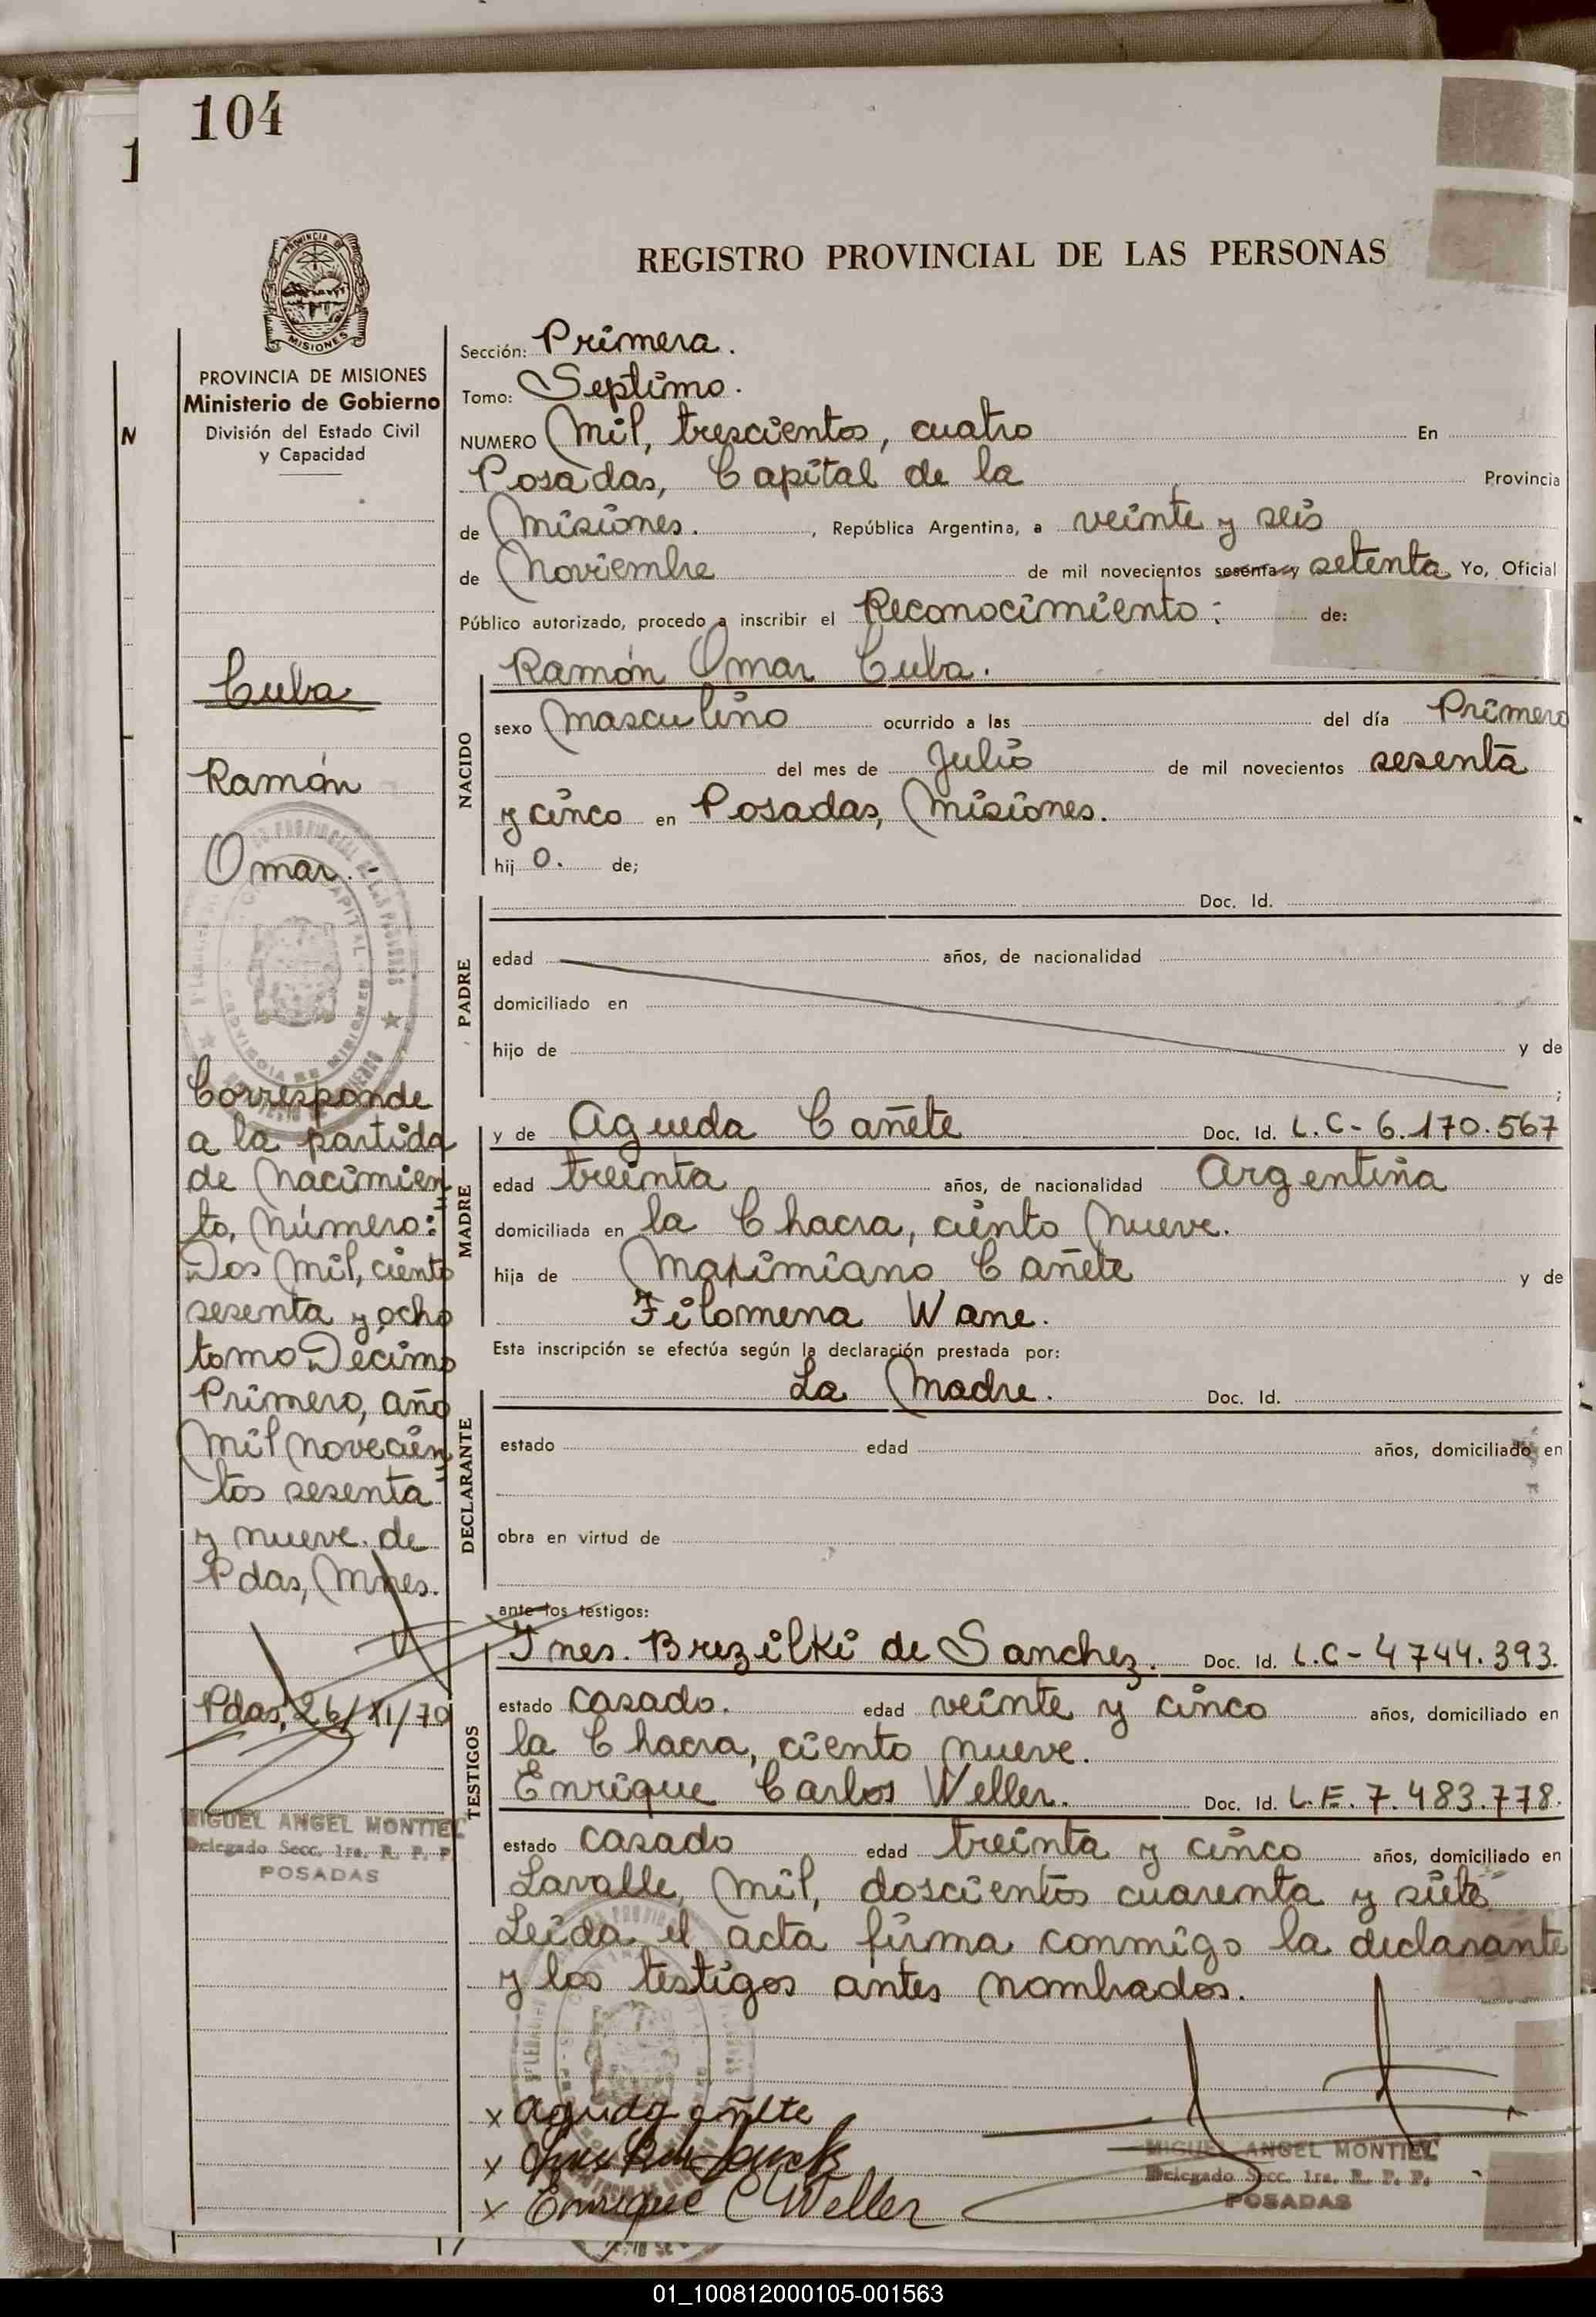 104
1
REGISTRO PROVINCIAL DE LAS PERSONAS
PROVINCIA DE
MISIONES
PROVINCIA DE MISIONES
Ministerio de Gobierno
División del Estado Civil
y Capacidad
N
Cuba
Ramón
Omar.-
Corresponde
a la partida
de Nacimien
to, número:
Dos Mil, ciento
sesenta y ocho
tomo Décimo
Primero, año
Mil novecien
tos sesenta
y nueve. de
Pdas, Mnes.
Pdas, 26/XI/70
MIGUEL ANGEL MONTIEL
Delegado Secc. 1ra. R. P. P.
POSADAS
Sección: Primera.
Tomo: Septimo.
NUMERO Mil, trescientos, cuatro En
Posadas, Capital de la Provincia
de Misiones. , República Argentina, a veinte y seis
de Noviembre de mil novecientos sesenta y setenta Yo, Oficial
Público autorizado, procedo a inscribir el Reconocimiento: de:
Ramón Omar Cuba.
NACIDO
sexo masculino ocurrido a las del día Primero
del mes de Julio de mil novecientos sesenta
y cinco en Posadas, Misiones.
hij o. de;
PADRE
Doc. Id.
edad años, de nacionalidad
domiciliado en
hijo de y de
;
MADRE
y de Agueda Cañete Doc. Id. L.C- 6.170.567
edad treinta años, de nacionalidad Argentina
domiciliada en la Chacra, ciento nueve.
hija de Maximiano Cañete y de
Filomena Wane.
Esta inscripción se efectúa según la declaración prestada por:
DECLARANTE
La Madre. Doc. Id.
estado edad años, domiciliado en
obra en virtud de
ante los testigos:
TESTIGOS
Ines. Brezilki de Sanchez. Doc. Id. L.C- 4744.393.
estado casado. edad veinte y cinco años, domiciliado en
la Chacra, ciento nueve.
Enrique Carlos Weller. Doc. Id. L.E. 7.483.778.
estado casado edad treinta y cinco años, domiciliado en
Lavalle, mil, doscientos cuarenta y siete
Leida el acta firma conmigo la declarante
y los testigos antes nombrados.
x
x
x Enrique C Weller
MIGUEL ANGEL MONTIEL
Delegado Secc. 1ra. R. P. P.
POSADAS
01_100812000105-001563